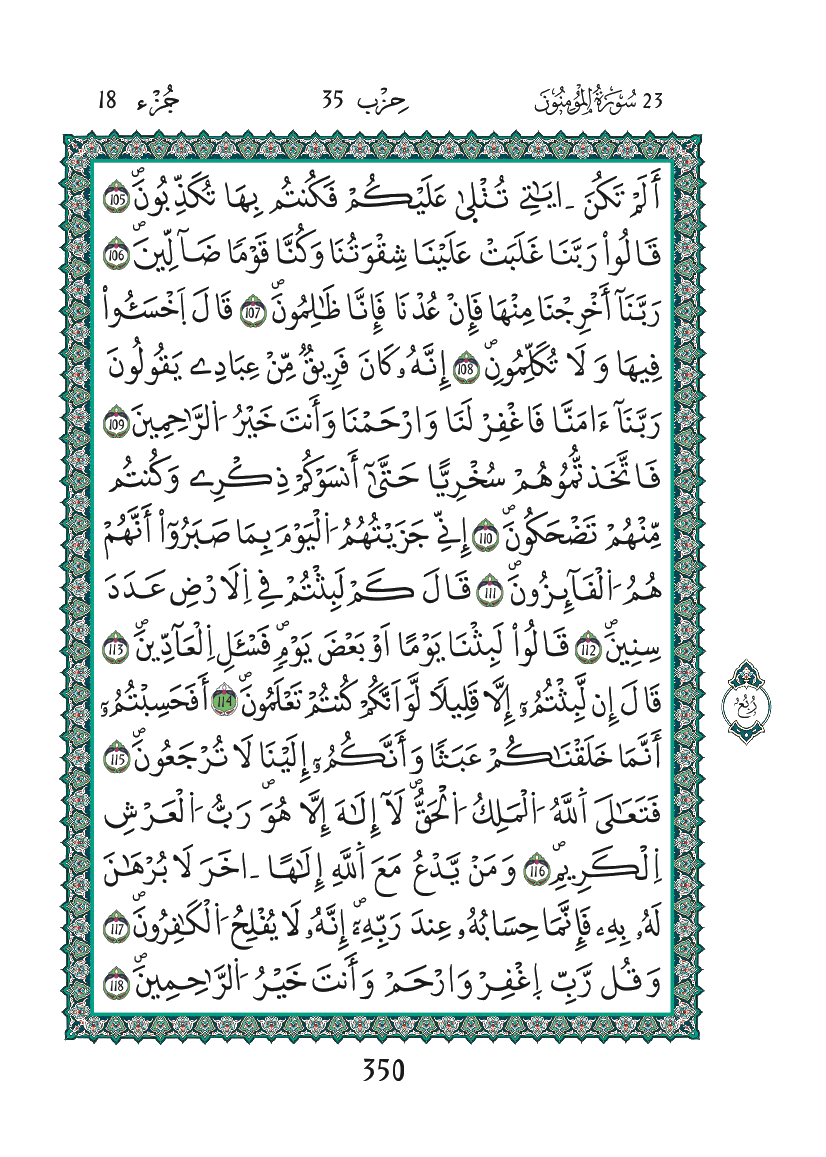 23 سُورَةُ الْمُؤْمِنُونَ حِزْب 35 جُزْء 18
أَلَمْ تَكُنَ ـ ايَٰتِے تُتْلَىٰ عَلَيْكُمْ فَكُنتُم بِهَا تُكَذِّبُونَۖ 105
قَالُواْ رَبَّنَا غَلَبَتْ عَلَيْنَا شِقْوَتُنَا وَكُنَّا قَوْمًا ضَآلِّينَۖ 106
رَبَّنَآ أَخْرِجْنَا مِنْهَا فَإِنْ عُدْنَا فَإِنَّا ظَٰلِمُونَۖ 107 قَالَ اَخْسَـُٔواْ
فِيهَا وَلَا تُكَلِّمُونِۖ 108 إِنَّهُۥ كَانَ فَرِيقٌ مِّنْ عِبَادِے يَقُولُونَ
رَبَّنَآ ءَامَنَّا فَاغْفِرْ لَنَا وَارْحَمْنَا وَأَنتَ خَيْرُ اُ۬لرَّٰحِمِينَۖ 109
فَاتَّخَذتُّمُوهُمْ سُخْرِيًّا حَتَّىٰٓ أَنسَوْكُمْ ذِكْرِے وَكُنتُم
مِّنْهُمْ تَضْحَكُونَۖ 110 إِنِّے جَزَيْتُهُمُ اُ۬لْيَوْمَ بِمَا صَبَرُوٓاْ أَنَّهُمْ
هُمُ اُ۬لْفَآئِزُونَۖ 111 قَالَ كَمْ لَبِثْتُمْ فِے اِ۬لَارْضِ عَدَدَ
سِنِينَۖ 112 قَالُواْ لَبِثْنَا يَوْمًا اَوْ بَعْضَ يَوْمٖ فَسْـَٔلِ اِ۬لْعَآدِّينَۖ 113
قَٰلَ إِن لَّبِثْتُمُۥٓ إِلَّا قَلِيلًا لَّوَ اَنَّكُمْ كُنتُمْ تَعْلَمُونَۖ 114 أَفَحَسِبْتُمُۥٓ
أَنَّمَا خَلَقْنَٰكُمْ عَبَثًا وَأَنَّكُمُۥٓ إِلَيْنَا لَا تُرْجَعُونَۖ 115
فَتَعَٰلَى اَ۬للَّهُ اُ۬لْمَلِكُ اُ۬لْحَقُّۖ لَآ إِلَٰهَ إِلَّا هُوَۖ رَبُّ اُ۬لْعَرْشِ
اِ۬لْكَرِيمِۖ 116 وَمَنْ يَّدْعُ مَعَ اَ۬للَّهِ إِلَٰهًا ـ اخَرَ لَا بُرْهَٰنَ
لَهُۥ بِهِۦ فَإِنَّمَا حِسَابُهُۥ عِندَ رَبِّهِۦٓۖ إِنَّهُۥ لَا يُفْلِحُ اُ۬لْكَٰفِرُونَۖ 117
وَقُل رَّبِّ اِ۪غْفِرْ وَارْحَمْ وَأَنتَ خَيْرُ اُ۬لرَّٰحِمِينَۖ 118
رُبُعُ
350